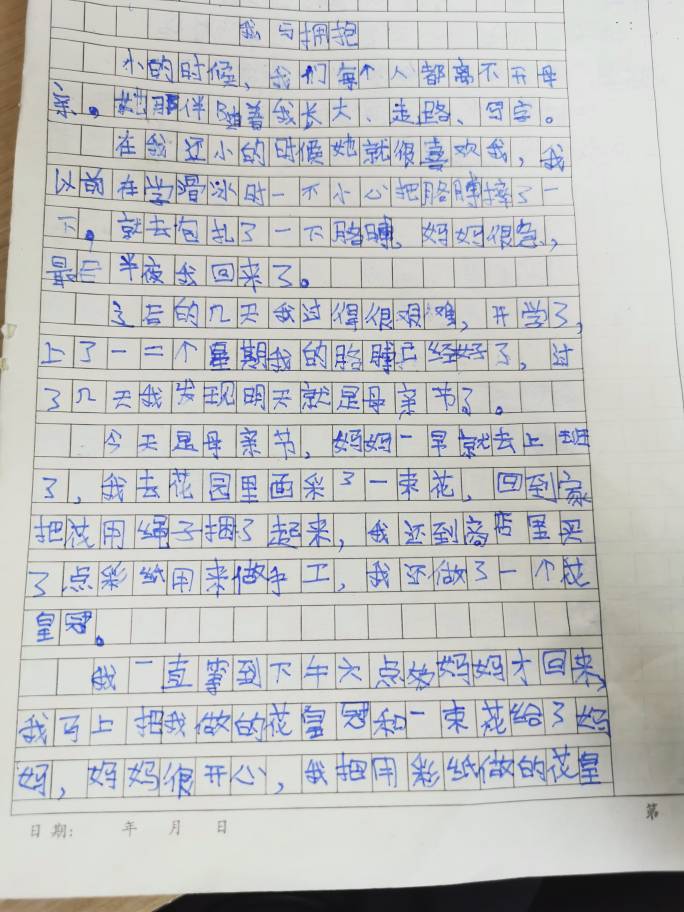 我与拥抱
小的时候,我们每个人都离不开母
亲。她陪伴随着我长大、走路、写字。
在我还小的时候她就很喜欢我,我
以前在学滑冰时一不小心把胳膊摔了一
下,就去包扎了一下胳膊,妈妈很急,
最后半夜我回来了。
之后的几天我过得很艰难,开学了,
上了一二个星期我的胳膊已经好了,过
了几天我发现明天就是母亲节了。
今天是母亲节,妈妈一早就去上班
了,我去花园里面采了一束花,回到家
把花用绳子捆了起来,我还到商店里买
了点彩纸用来做手工,我还做了一个花
皇冠。
我一直等到下午六点多妈妈才回来,
我马上把我做的花皇冠和一束花给了妈
妈,妈妈很开心,我把用彩纸做的花皇
第
日期: 年 月 日